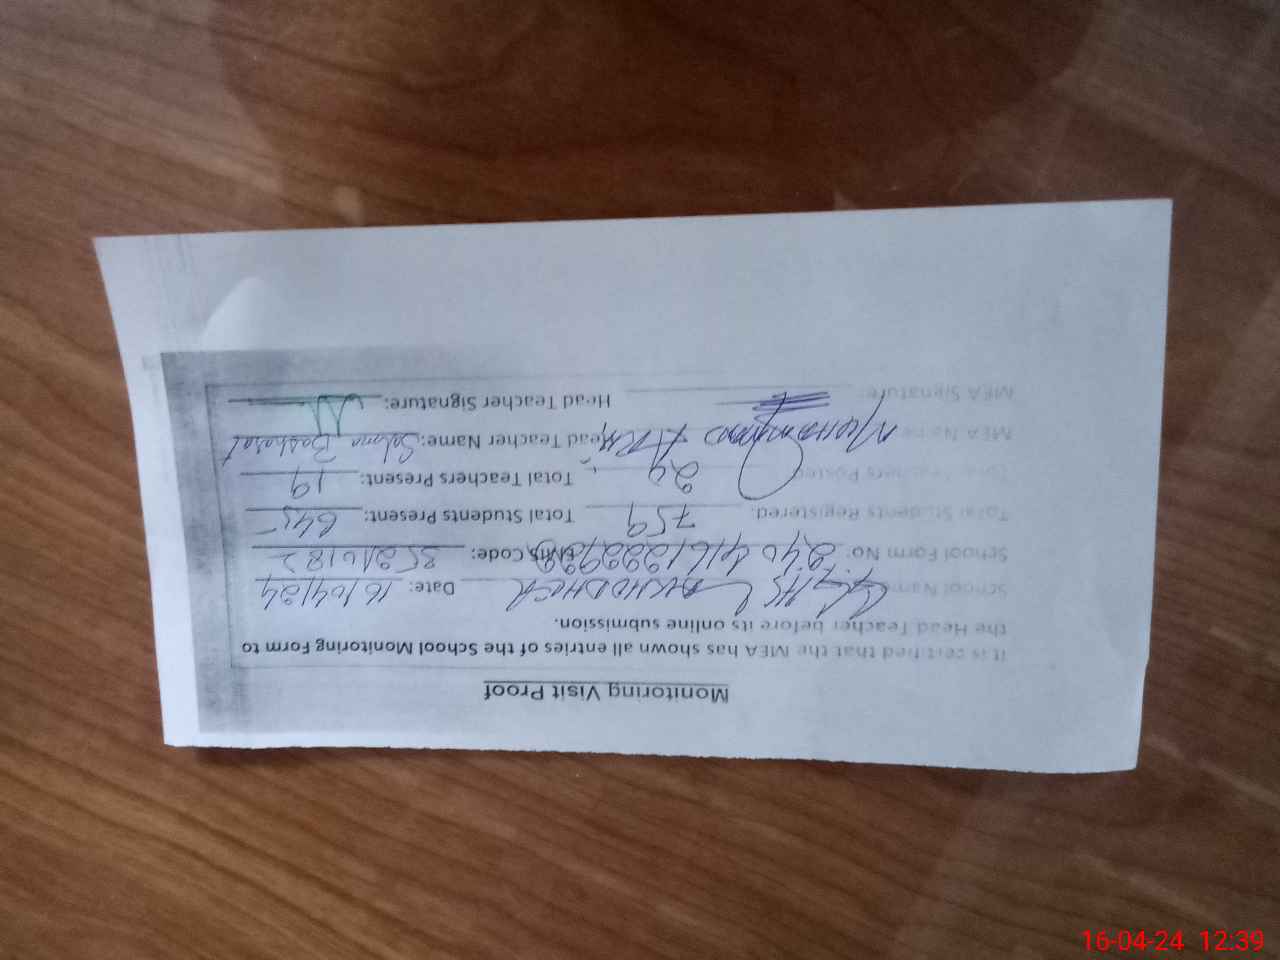 Monitoring Visit Proof
It is certified that the MEA has shown all entries of the School Monitoring Form to
the Head Teacher before its online submission.
School Name Date: 16/04/24
School Form No: EMIS Code: 35210182
Total Students Registered: 759 Total Students Present: 645
Total Teachers Posted 24 Total Teachers Present: 19
MEA Name Head Teacher Name: Salma Basharat
MEA Signature: Head Teacher Signature:
16-04-24 12:39